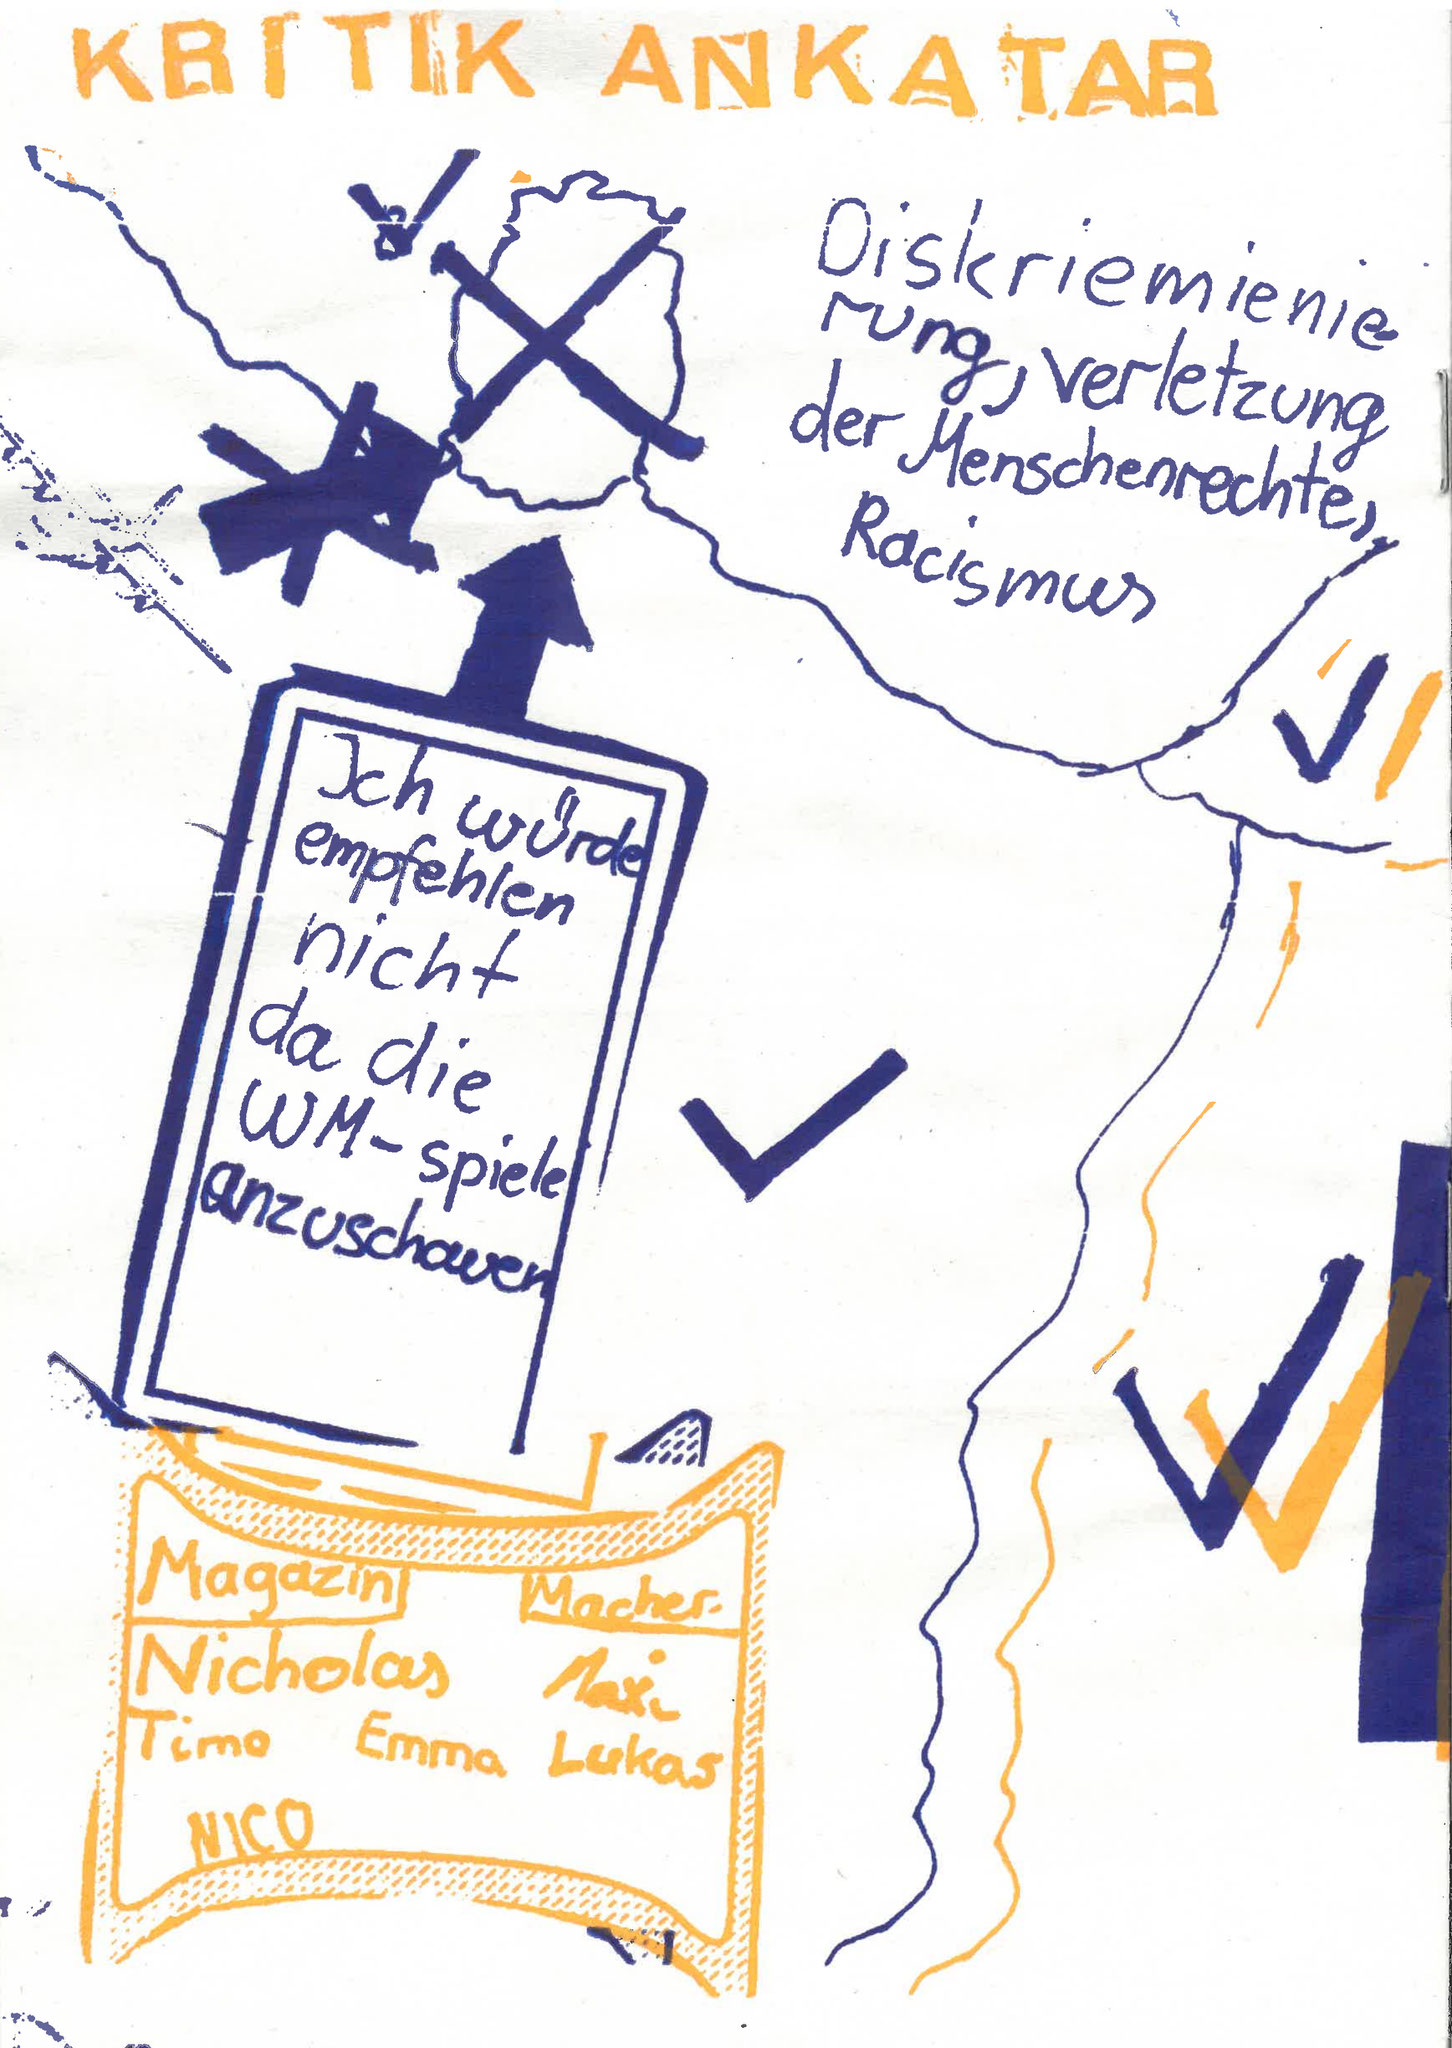 KRITIK ANKATAR
Diskriemienie
rung, verletzung
der Menschenrechte,
Racismus
Ich würde
empfehlen
nicht
da die
WM-spiele
anzuschauen
Magazin Macher.
Nicholas Maxi
Timo Emma Lukas
NICO